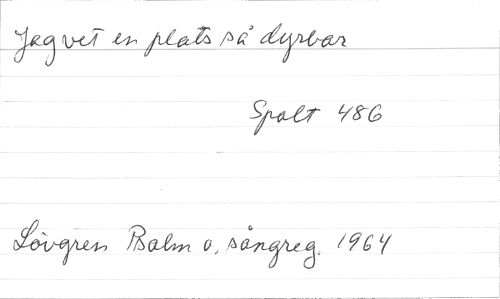 Jag vet en plats så dyrbar
Spalt 486
Lövgren Psalm o. sångreg. 1964